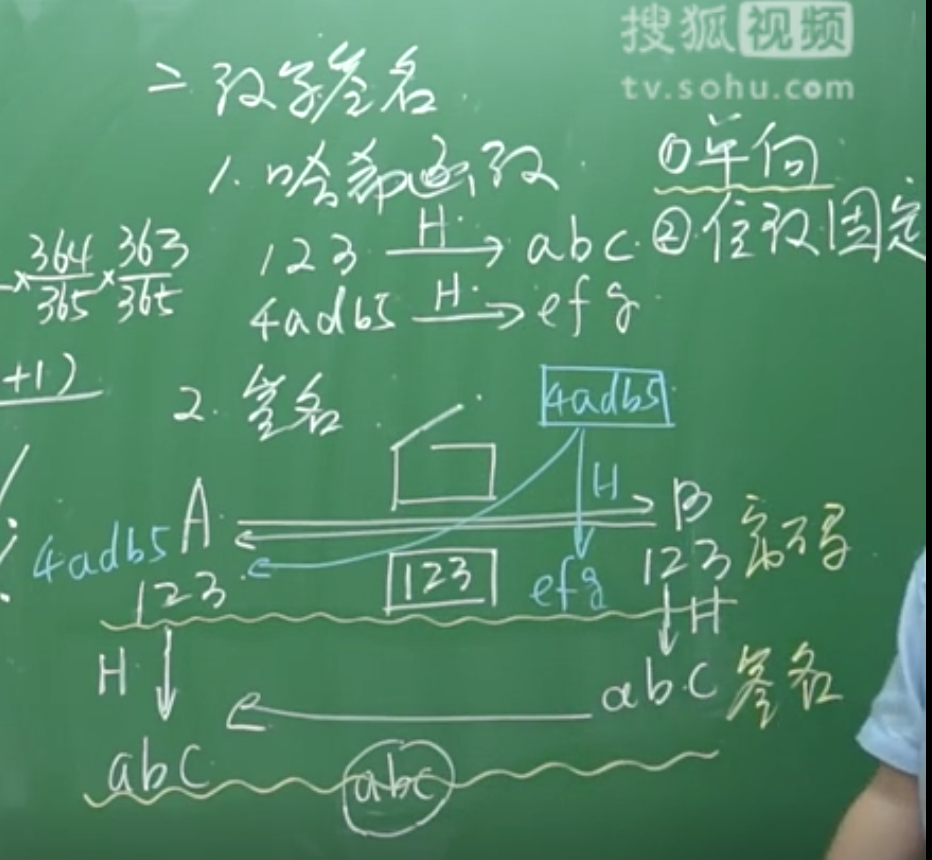 搜狐视频
tv.sohu.com
二. 数字签名
1. 哈希函数
①单向
②位数固定
× 364/365 × 363/365
123 H→ abc
4adb5 H→ efg
+1)
2. 签名
4adb5
H
A
B
4adb5
123
123
efg
123
密码
H
H
abc
签名
abc
abc